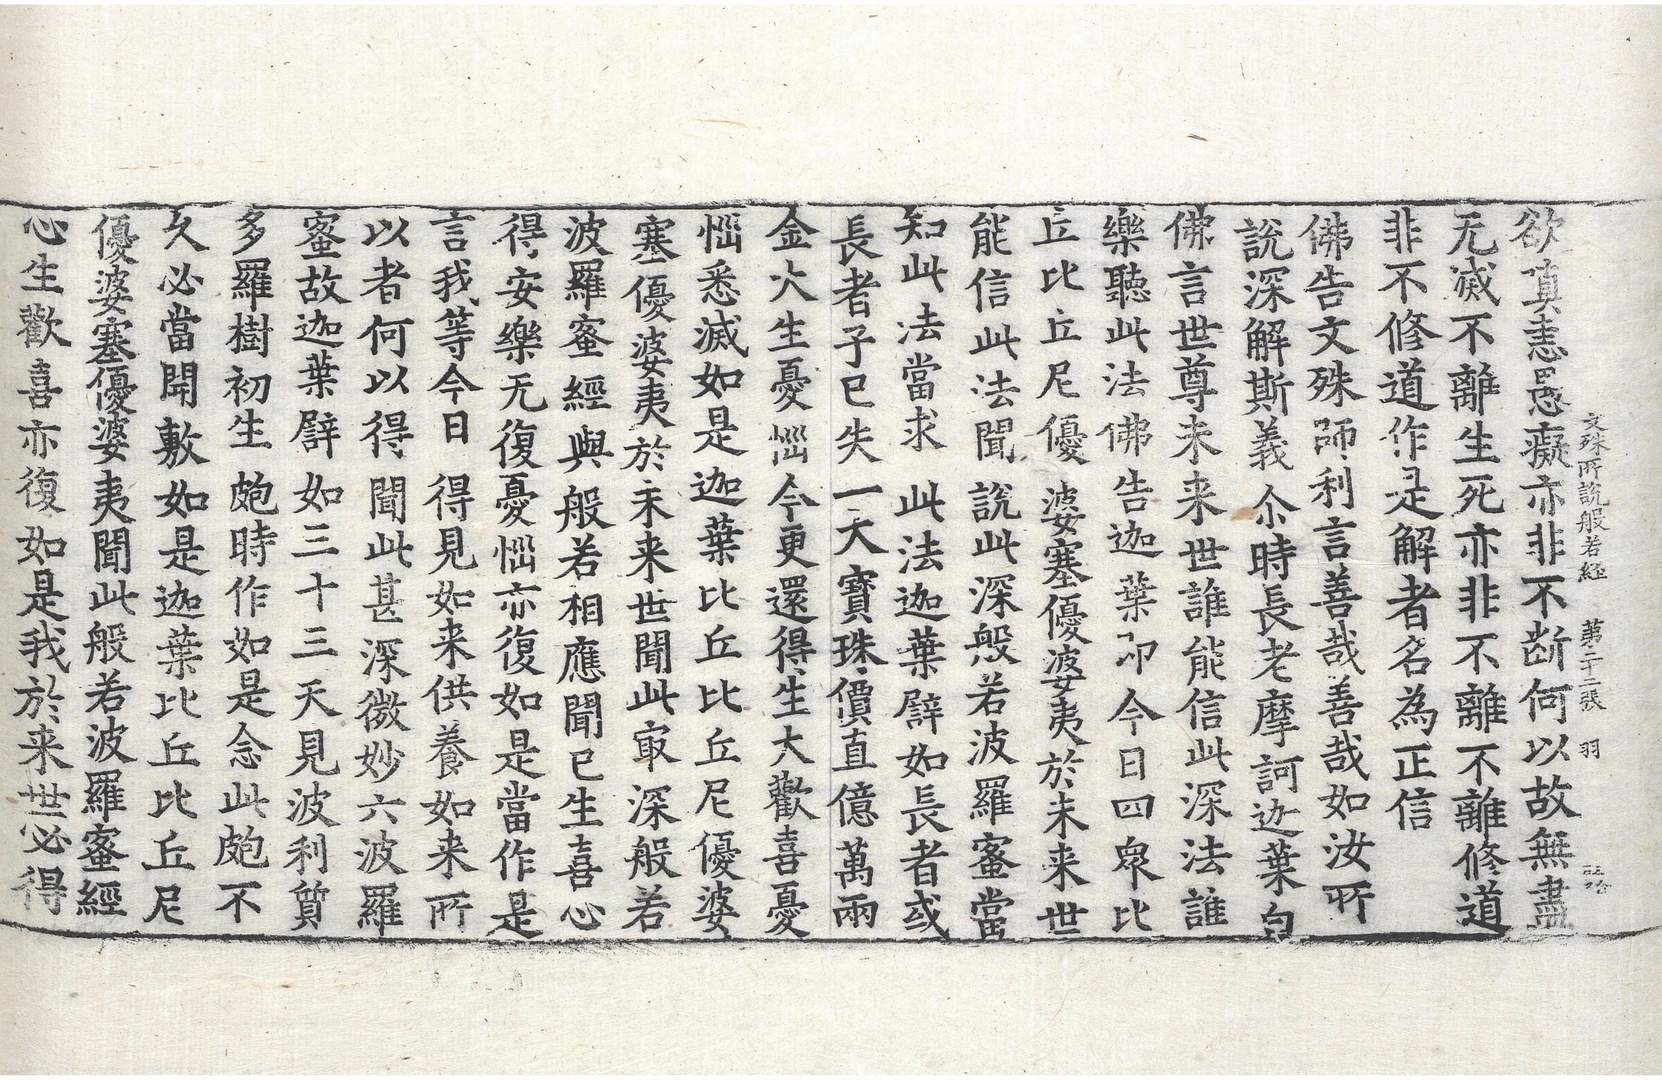 文殊所說般若経 第二十二張 羽
欲真恚愚癡亦非不断何以故無盡
无滅不離生死亦非不離不離修道
非不修道作是解者名為正信
佛告文殊師利言善哉善哉如汝所
說深解斯義尒時長老摩訶迦葉白
佛言世尊未来世誰能信此深法誰
樂聽此法佛告迦葉即今日四衆比
丘比丘尼優婆塞優婆夷於未来世
能信此法聞說此深般若波羅蜜當
知此法當求此法迦葉譬如長者或
長者子已失一大寶珠價直億萬兩
金大生憂惱今更還得生大歡喜憂
惱悉滅如是迦葉比丘比丘尼優婆
塞優婆夷於未来世聞此㝡深般若
波羅蜜經與般若相應聞已生喜心
得安樂无復憂惱亦復如是當作是
言我等今日得見如来供養如来所
以者何以得聞此甚深微妙六波羅
蜜故迦葉譬如三十三天見波利質
多羅樹初生皰時作如是念此皰不
久必當開敷如是迦葉比丘比丘尼
優婆塞優婆夷聞此般若波羅蜜經
心生歡喜亦復如是我於来世必得